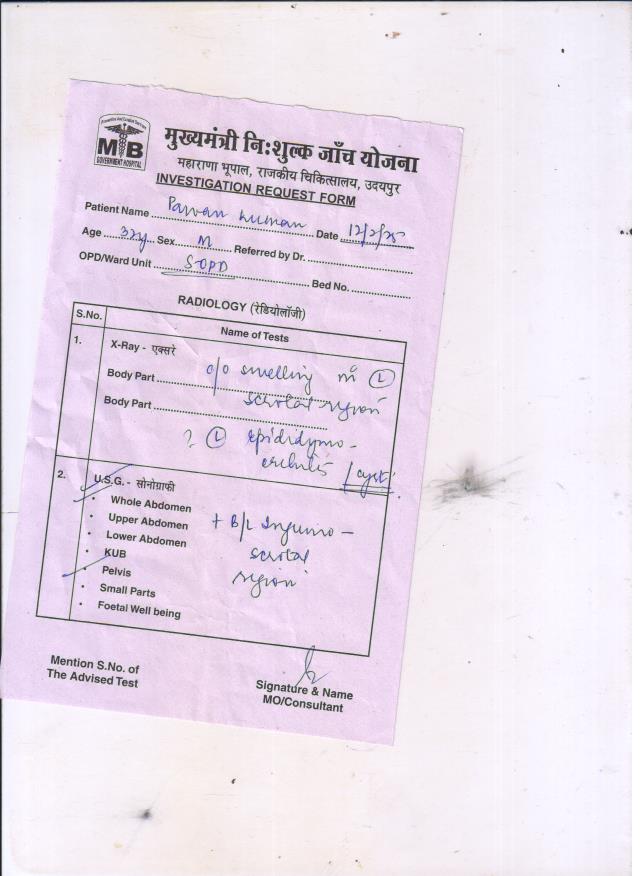 Preventive And Curative Services
MB
GOVERNMENT HOSPITAL
मुख्यमंत्री नि:शुल्क जाँच योजना
महाराणा भूपाल, राजकीय चिकित्सालय, उदयपुर
INVESTIGATION REQUEST FORM
Patient Name Pawan kuman Date 12/2/25
Age 32y Sex M Referred by Dr.
OPD/Ward Unit SOPD Bed No.
RADIOLOGY (रेडियोलॉजी)
S.No. Name of Tests
1. X-Ray - एक्सरे
Body Part c/o swelling in (L)
Body Part scrotal region
? (L) epididymo-
orchitis / cyst
2. U.S.G. - सोनोग्राफी
• Whole Abdomen
• Upper Abdomen + B/L Inguino-
• Lower Abdomen scrotal
• KUB region
• Pelvis
• Small Parts
• Foetal Well being
Mention S.No. of
The Advised Test
Signature & Name
MO/Consultant